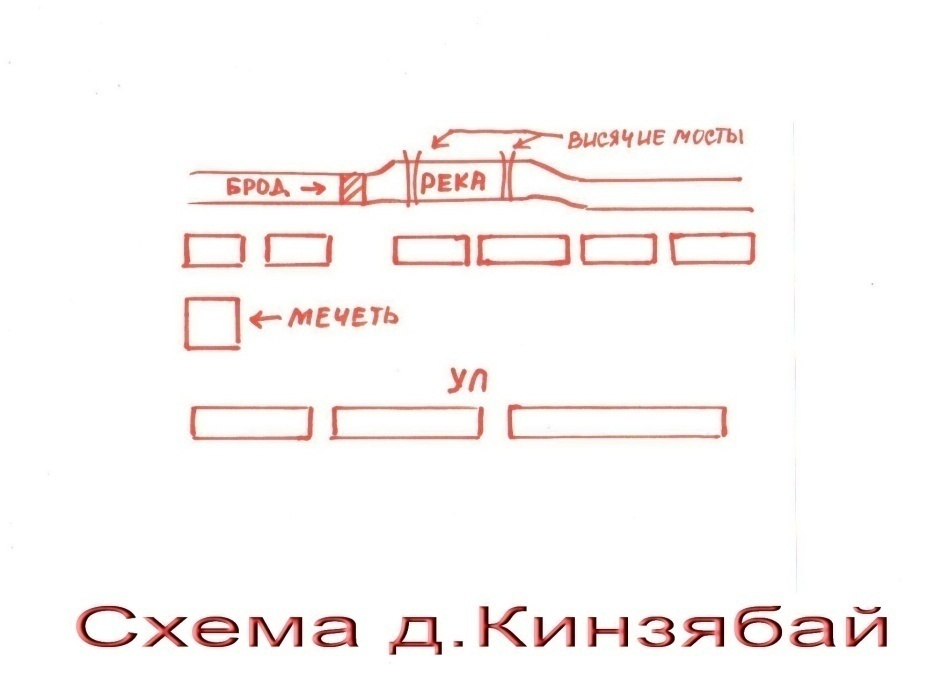 ВИСЯЧИЕ МОСТЫ
БРОД
РЕКА
МЕЧЕТЬ
УЛ
Схема д.Кинзябай